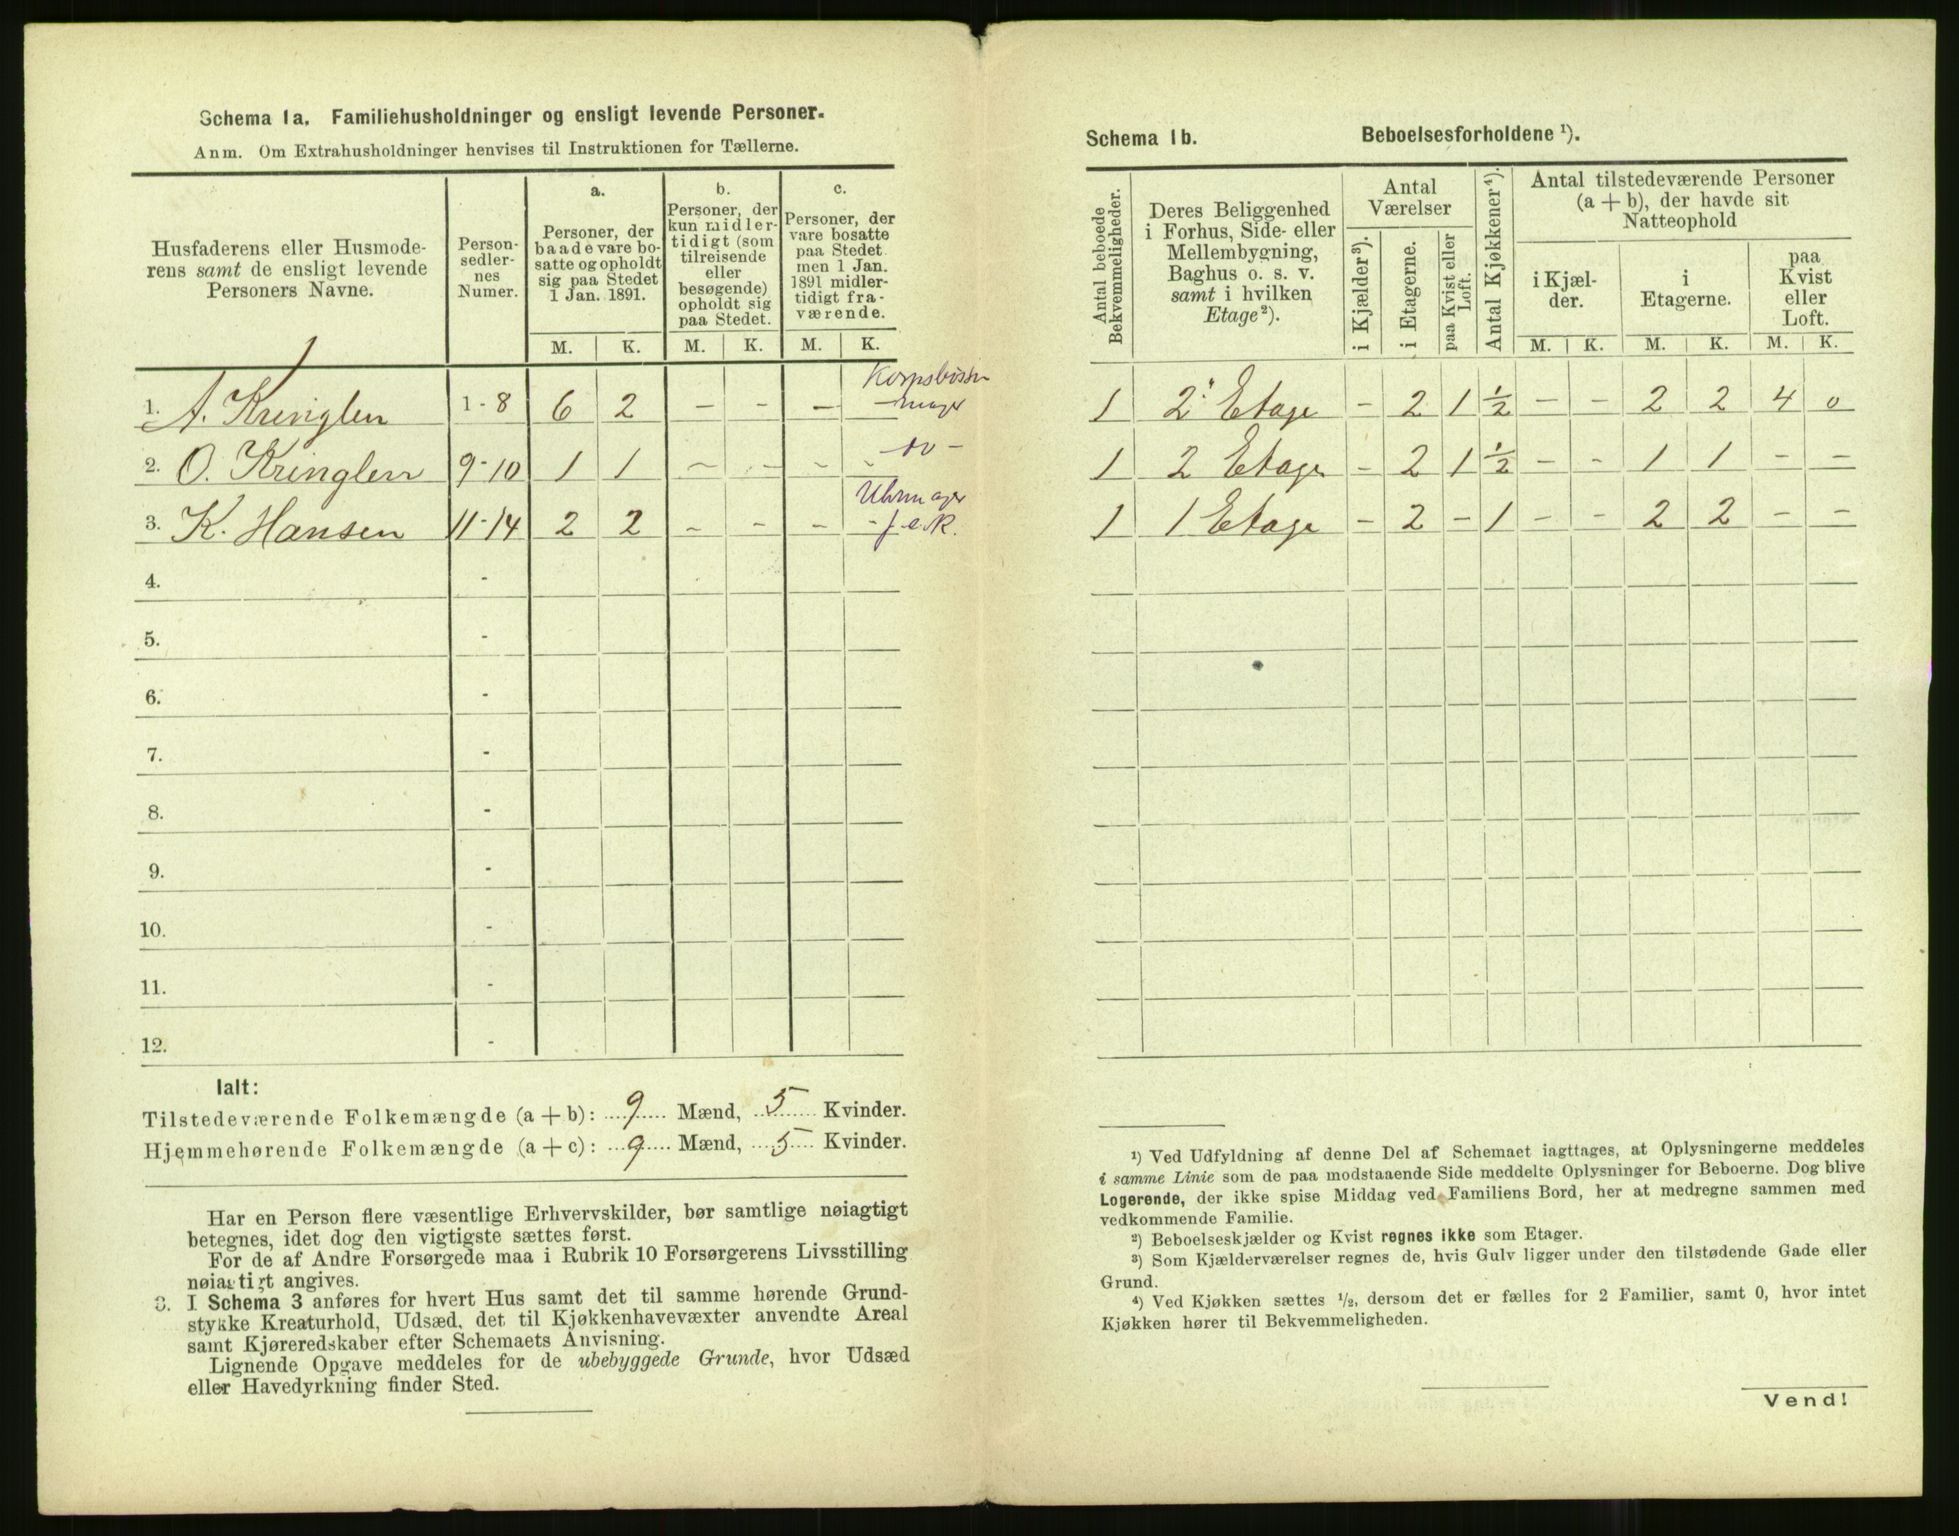 Schema 1a. Familiehusholdninger og ensligt levende Personer.
Anm. Om Extrahusholdninger henvises til Instruktionen for Tællerne.
Husfaderens eller Husmode-
rens samt de ensligt levende
Personers Navne.
Person-
sedler-
nes
Numer.
a.
Personer, der
baade vare bo-
satte og opholdt
sig paa Stedet
1 Jan. 1891.
b.
Personer, der
kun midler-
tidigt (som
tilreisende
eller
besøgende)
opholdt sig
paa Stedet.
c.
Personer, der
vare bosatte
paa Stedet
men 1 Jan.
1891 midler-
tidigt fra-
værende.
M. K. M. K. M. K.
1. A. Kringlen 1-8 6 2 - - -
2. O. Kringlen 9-10 1 1 - - - -
3. K. Hansen 11-14 2 2 - - - -
Uhrmager
4. -
5. -
6. -
7. -
8. -
9. -
10. -
11. -
12. -
Ialt:
Tilstedeværende Folkemængde (a + b): 9 Mænd, 5 Kvinder.
Hjemmehørende Folkemængde (a + c): 9 Mænd, 5 Kvinder.
Har en Person flere væsentlige Erhvervskilder, bør samtlige nøiagtigt
betegnes, idet dog den vigtigste sættes først.
For de af Andre Forsørgede maa i Rubrik 10 Forsørgerens Livsstilling
nøiagtigt angives.
3. I Schema 3 anføres for hvert Hus samt det til samme hørende Grund-
stykke Kreaturhold, Udsæd, det til Kjøkkenhavevæxter anvendte Areal
samt Kjøreredskaber efter Schemaets Anvisning.
Lignende Opgave meddeles for de ubebyggede Grunde, hvor Udsæd
eller Havedyrkning finder Sted.
Schema 1b. Beboelsesforholdene ¹).
Antal beboede
Bekvemmeligheder.
Deres Beliggenhed
i Forhus, Side- eller
Mellembygning,
Baghus o. s. v.
samt i hvilken
Etage ²).
Antal
Værelser
i Kjælder ³).
i Etagerne.
paa Kvist eller
Loft.
Antal Kjøkkener ⁴).
Antal tilstedeværende Personer
(a + b), der havde sit
Natteophold
i Kjæl-
der.
i
Etagerne.
paa
Kvist
eller
Loft.
M. K. M. K. M. K.
1 2 Etage - 2 1 ½ - - 2 2 4 0
1 2 Etage - 2 1 ½ - - 1 1 - -
1 1 Etage - 2 - 1 - - 2 2 - -
¹) Ved Udfyldning af denne Del af Schemaet iagttages, at Oplysningerne meddeles
i samme Linie som de paa modstaaende Side meddelte Oplysninger for Beboerne. Dog blive
Logerende, der ikke spise Middag ved Familiens Bord, her at medregne sammen med
vedkommende Familie.
²) Beboelseskjælder og Kvist regnes ikke som Etager.
³) Som Kjælderværelser regnes de, hvis Gulv ligger under den tilstødende Gade eller
Grund.
⁴) Ved Kjøkken sættes ½, dersom det er fælles for 2 Familier, samt 0, hvor intet
Kjøkken hører til Bekvemmeligheden.
Vend!